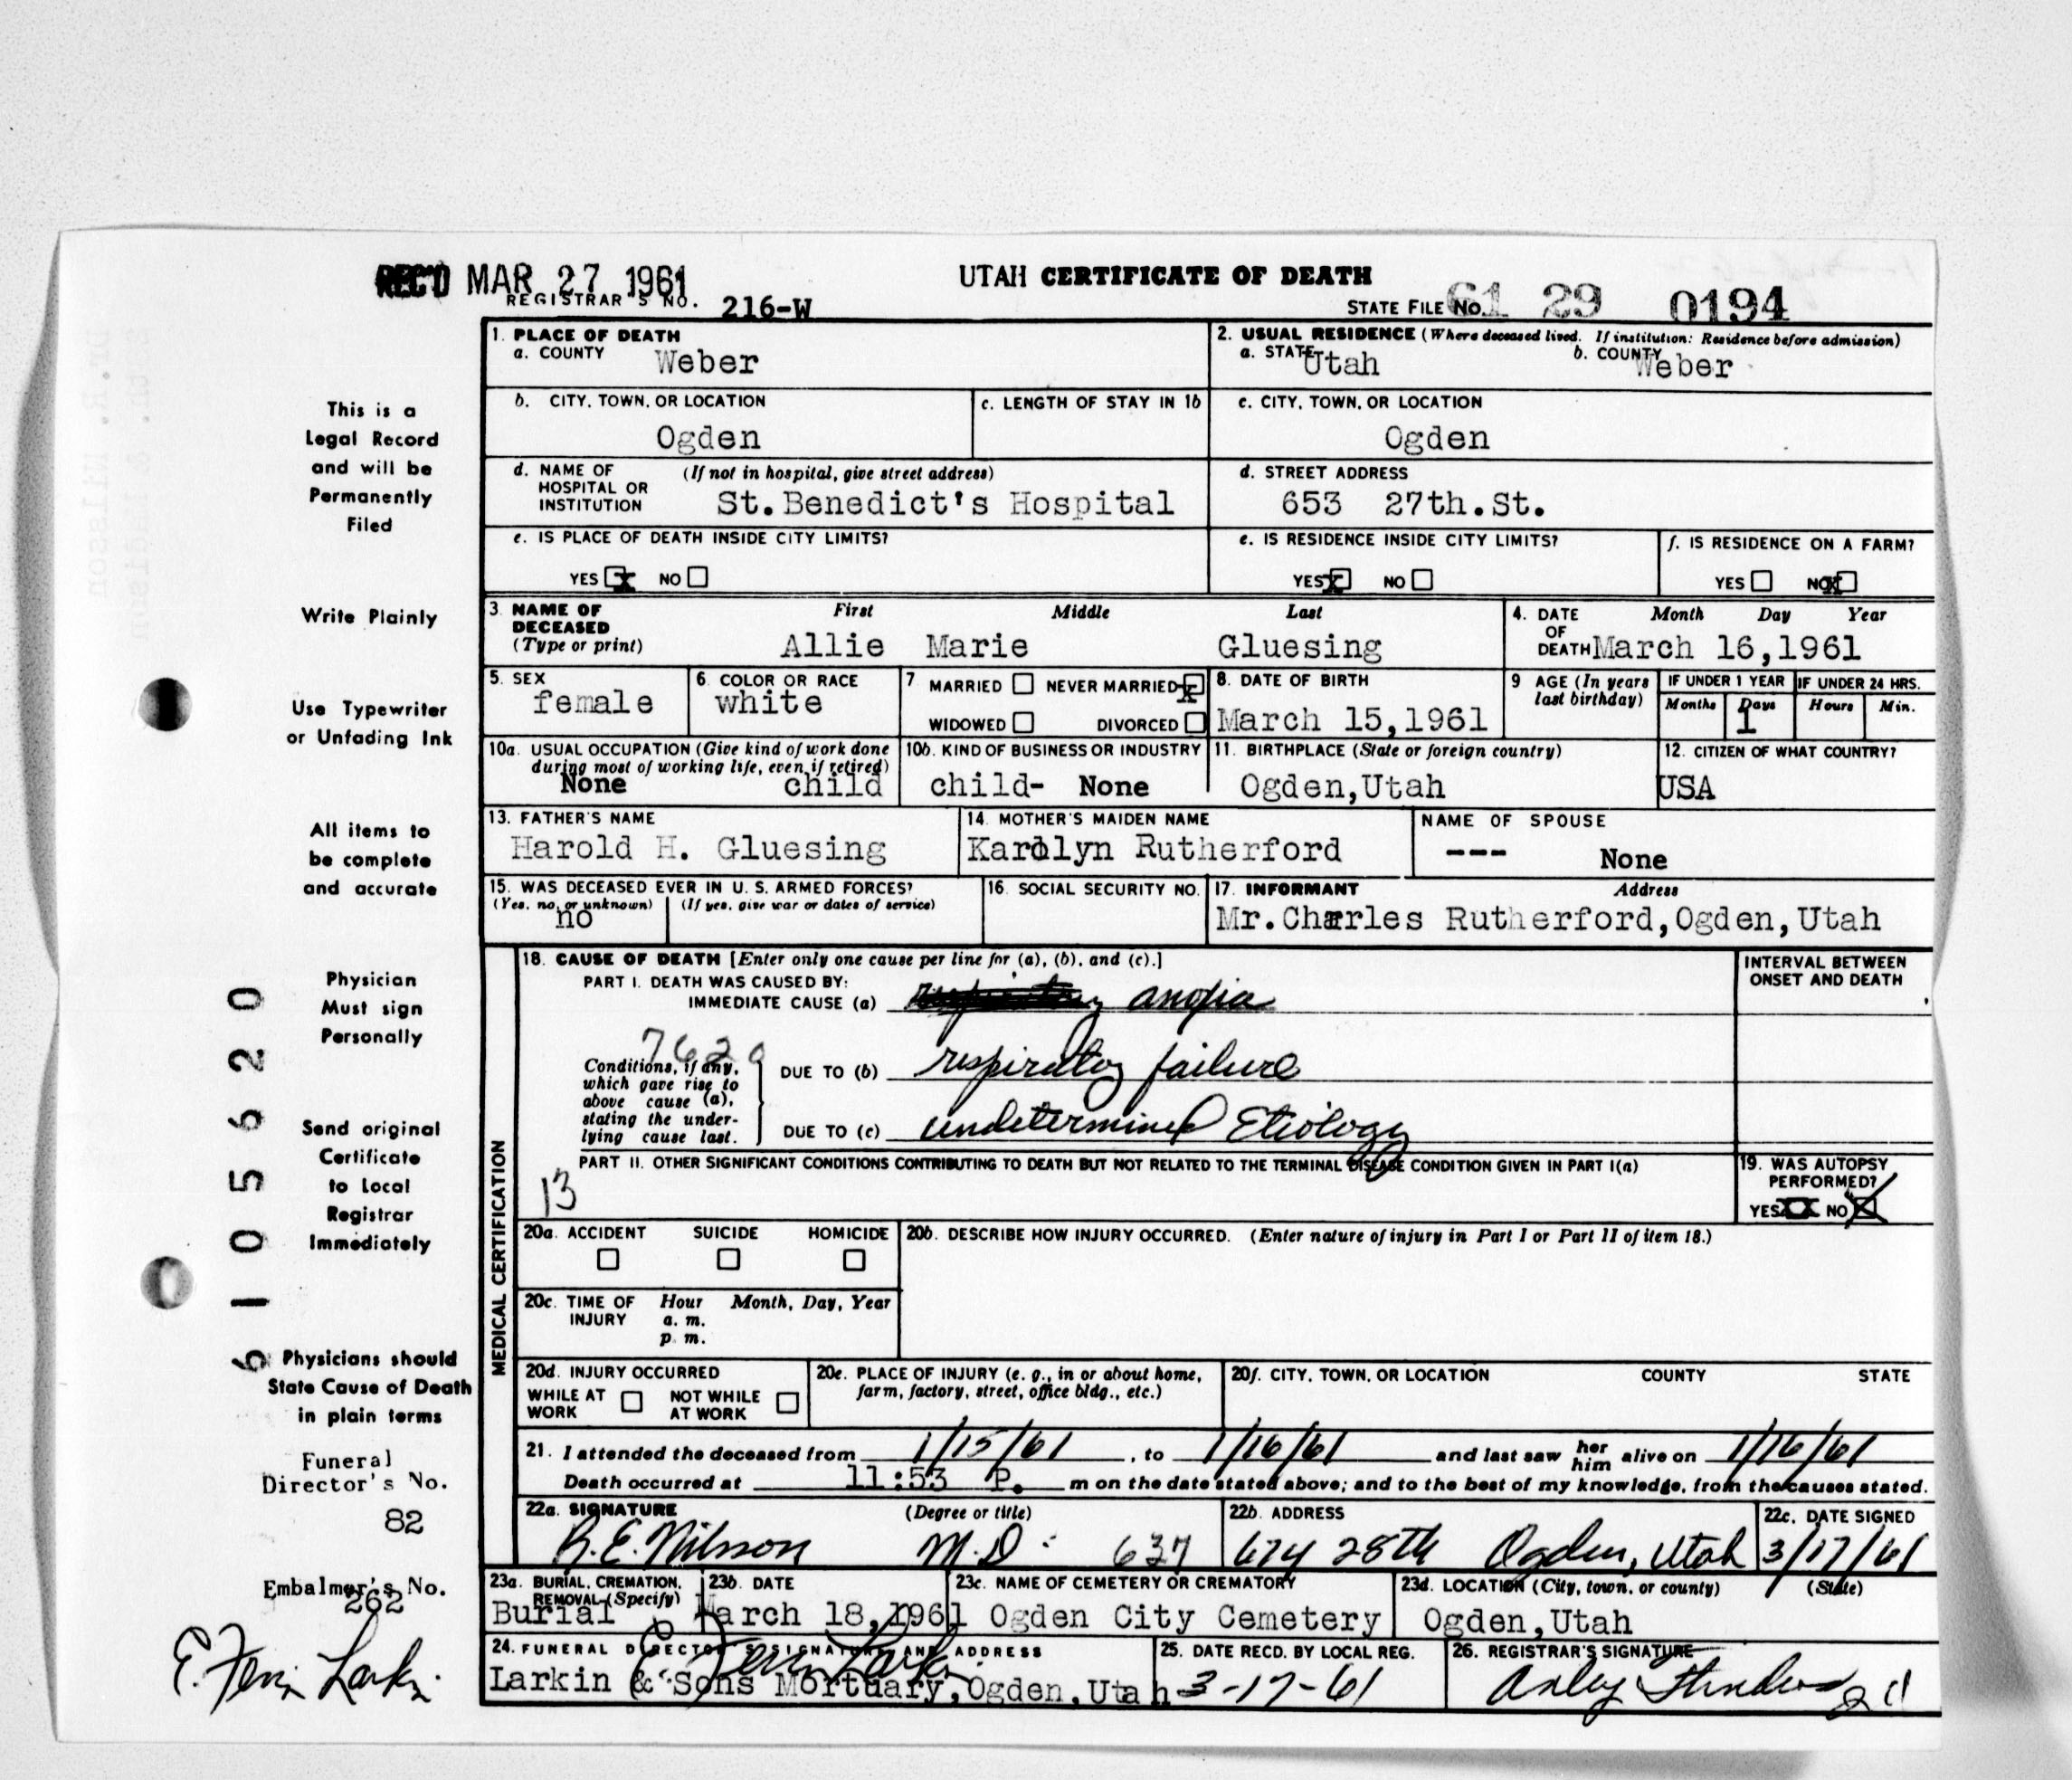 REC'D MAR 27 1961
UTAH CERTIFICATE OF DEATH
REGISTRAR'S NO. 216-W
STATE FILE No. 61 29 0194
1. PLACE OF DEATH
a. COUNTY Weber
2. USUAL RESIDENCE (Where deceased lived. If institution: Residence before admission)
a. STATE Utah b. COUNTY Weber
b. CITY, TOWN, OR LOCATION
Ogden
c. LENGTH OF STAY IN 1b
c. CITY, TOWN, OR LOCATION
Ogden
d. NAME OF HOSPITAL OR INSTITUTION (If not in hospital, give street address)
St.Benedict's Hospital
d. STREET ADDRESS
653 27th.St.
e. IS PLACE OF DEATH INSIDE CITY LIMITS?
YES x NO
e. IS RESIDENCE INSIDE CITY LIMITS?
YES x NO
f. IS RESIDENCE ON A FARM?
YES NO x
3. NAME OF DECEASED (Type or print)
First Middle Last
Allie Marie Gluesing
4. DATE OF DEATH Month Day Year
March 16,1961
5. SEX
female
6. COLOR OR RACE
white
7 MARRIED NEVER MARRIED x
WIDOWED DIVORCED
8. DATE OF BIRTH
March 15,1961
9 AGE (In years last birthday)
IF UNDER 1 YEAR
Months Days
1
IF UNDER 24 HRS.
Hours Min.
10a. USUAL OCCUPATION (Give kind of work done during most of working life, even if retired)
None child
10b. KIND OF BUSINESS OR INDUSTRY
child- None
11. BIRTHPLACE (State or foreign country)
Ogden,Utah
12. CITIZEN OF WHAT COUNTRY?
USA
13. FATHER'S NAME
Harold H. Gluesing
14. MOTHER'S MAIDEN NAME
Karolyn Rutherford
NAME OF SPOUSE
--- None
15. WAS DECEASED EVER IN U. S. ARMED FORCES?
(Yes, no, or unknown) (If yes, give war or dates of service)
no
16. SOCIAL SECURITY NO.
17. INFORMANT Address
Mr.Charles Rutherford,Ogden,Utah
MEDICAL CERTIFICATION
18. CAUSE OF DEATH [Enter only one cause per line for (a), (b), and (c).]
PART I. DEATH WAS CAUSED BY:
IMMEDIATE CAUSE (a) anoxia
INTERVAL BETWEEN ONSET AND DEATH
7620
Conditions, if any, which gave rise to above cause (a), stating the underlying cause last.
DUE TO (b) respiratory failure
DUE TO (c) undetermined Etiology
PART II. OTHER SIGNIFICANT CONDITIONS CONTRIBUTING TO DEATH BUT NOT RELATED TO THE TERMINAL DISEASE CONDITION GIVEN IN PART I(a)
13
19. WAS AUTOPSY PERFORMED?
YES NO X
20a. ACCIDENT SUICIDE HOMICIDE
20b. DESCRIBE HOW INJURY OCCURRED. (Enter nature of injury in Part I or Part II of item 18.)
20c. TIME OF INJURY Hour Month, Day, Year
a. m.
p. m.
20d. INJURY OCCURRED
WHILE AT WORK NOT WHILE AT WORK
20e. PLACE OF INJURY (e. g., in or about home, farm, factory, street, office bldg., etc.)
20f. CITY, TOWN, OR LOCATION COUNTY STATE
21. I attended the deceased from 1/15/61, to 1/16/61 and last saw her him alive on 1/16/61
Death occurred at 11:53 P. m on the date stated above; and to the best of my knowledge, from the causes stated.
22a. SIGNATURE (Degree or title)
R.E. Nilsson M.D. 637
22b. ADDRESS
674 28th Ogden, Utah
22c. DATE SIGNED
3/17/61
23a. BURIAL, CREMATION, REMOVAL (Specify)
Burial
23b. DATE
March 18,1961
23c. NAME OF CEMETERY OR CREMATORY
Ogden City Cemetery
23d. LOCATION (City, town, or county) (State)
Ogden,Utah
24. FUNERAL DIRECTOR'S SIGNATURE AND ADDRESS
Larkin & Sons Mortuary,Ogden,Utah
25. DATE RECD. BY LOCAL REG.
3-17-61
26. REGISTRAR'S SIGNATURE
This is a
Legal Record
and will be
Permanently
Filed
Write Plainly
Use Typewriter
or Unfading Ink
All items to
be complete
and accurate
Physician
Must sign
Personally
Send original
Certificate
to Local
Registrar
Immediately
Physicians should
State Cause of Death
in plain terms
6105620
Funeral
Director's No.
82
Embalmer's No.
262